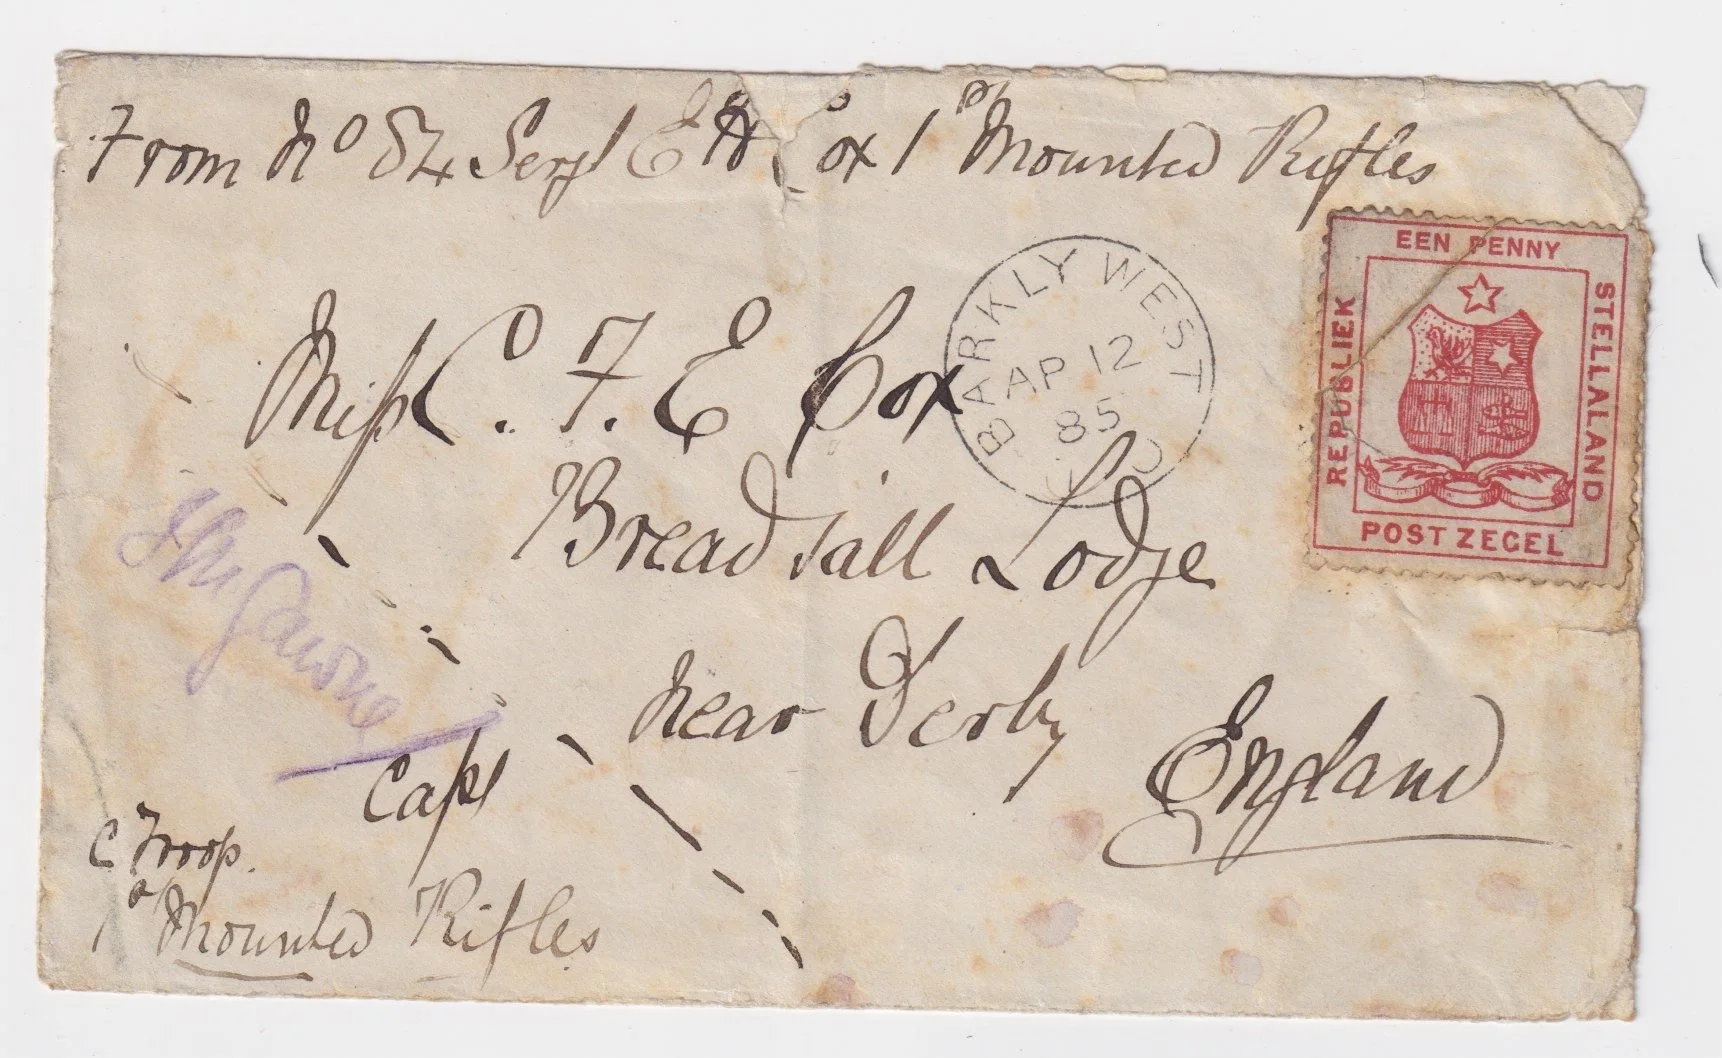 From No 84 Sergt E H Cox 1st Mounted Rifles
EEN PENNY
REPUBLIEK
STELLALAND
POST ZEGEL
BARKLY WEST
AP 12
85
Miss C. F. E Cox
Breadsall Lodge
near Derby
England
Capt
C Troop.
1st Mounted Rifles